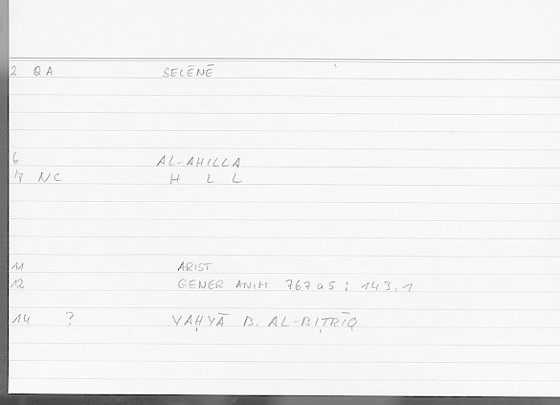 2 QA SELĒNĒ
6 AL-AHILLA
7 NC H L L
11 ARIST
12 GENER ANIM 767a5 : 143.1
14 ? YAḤYĀ B. AL-BIṬRĪQ